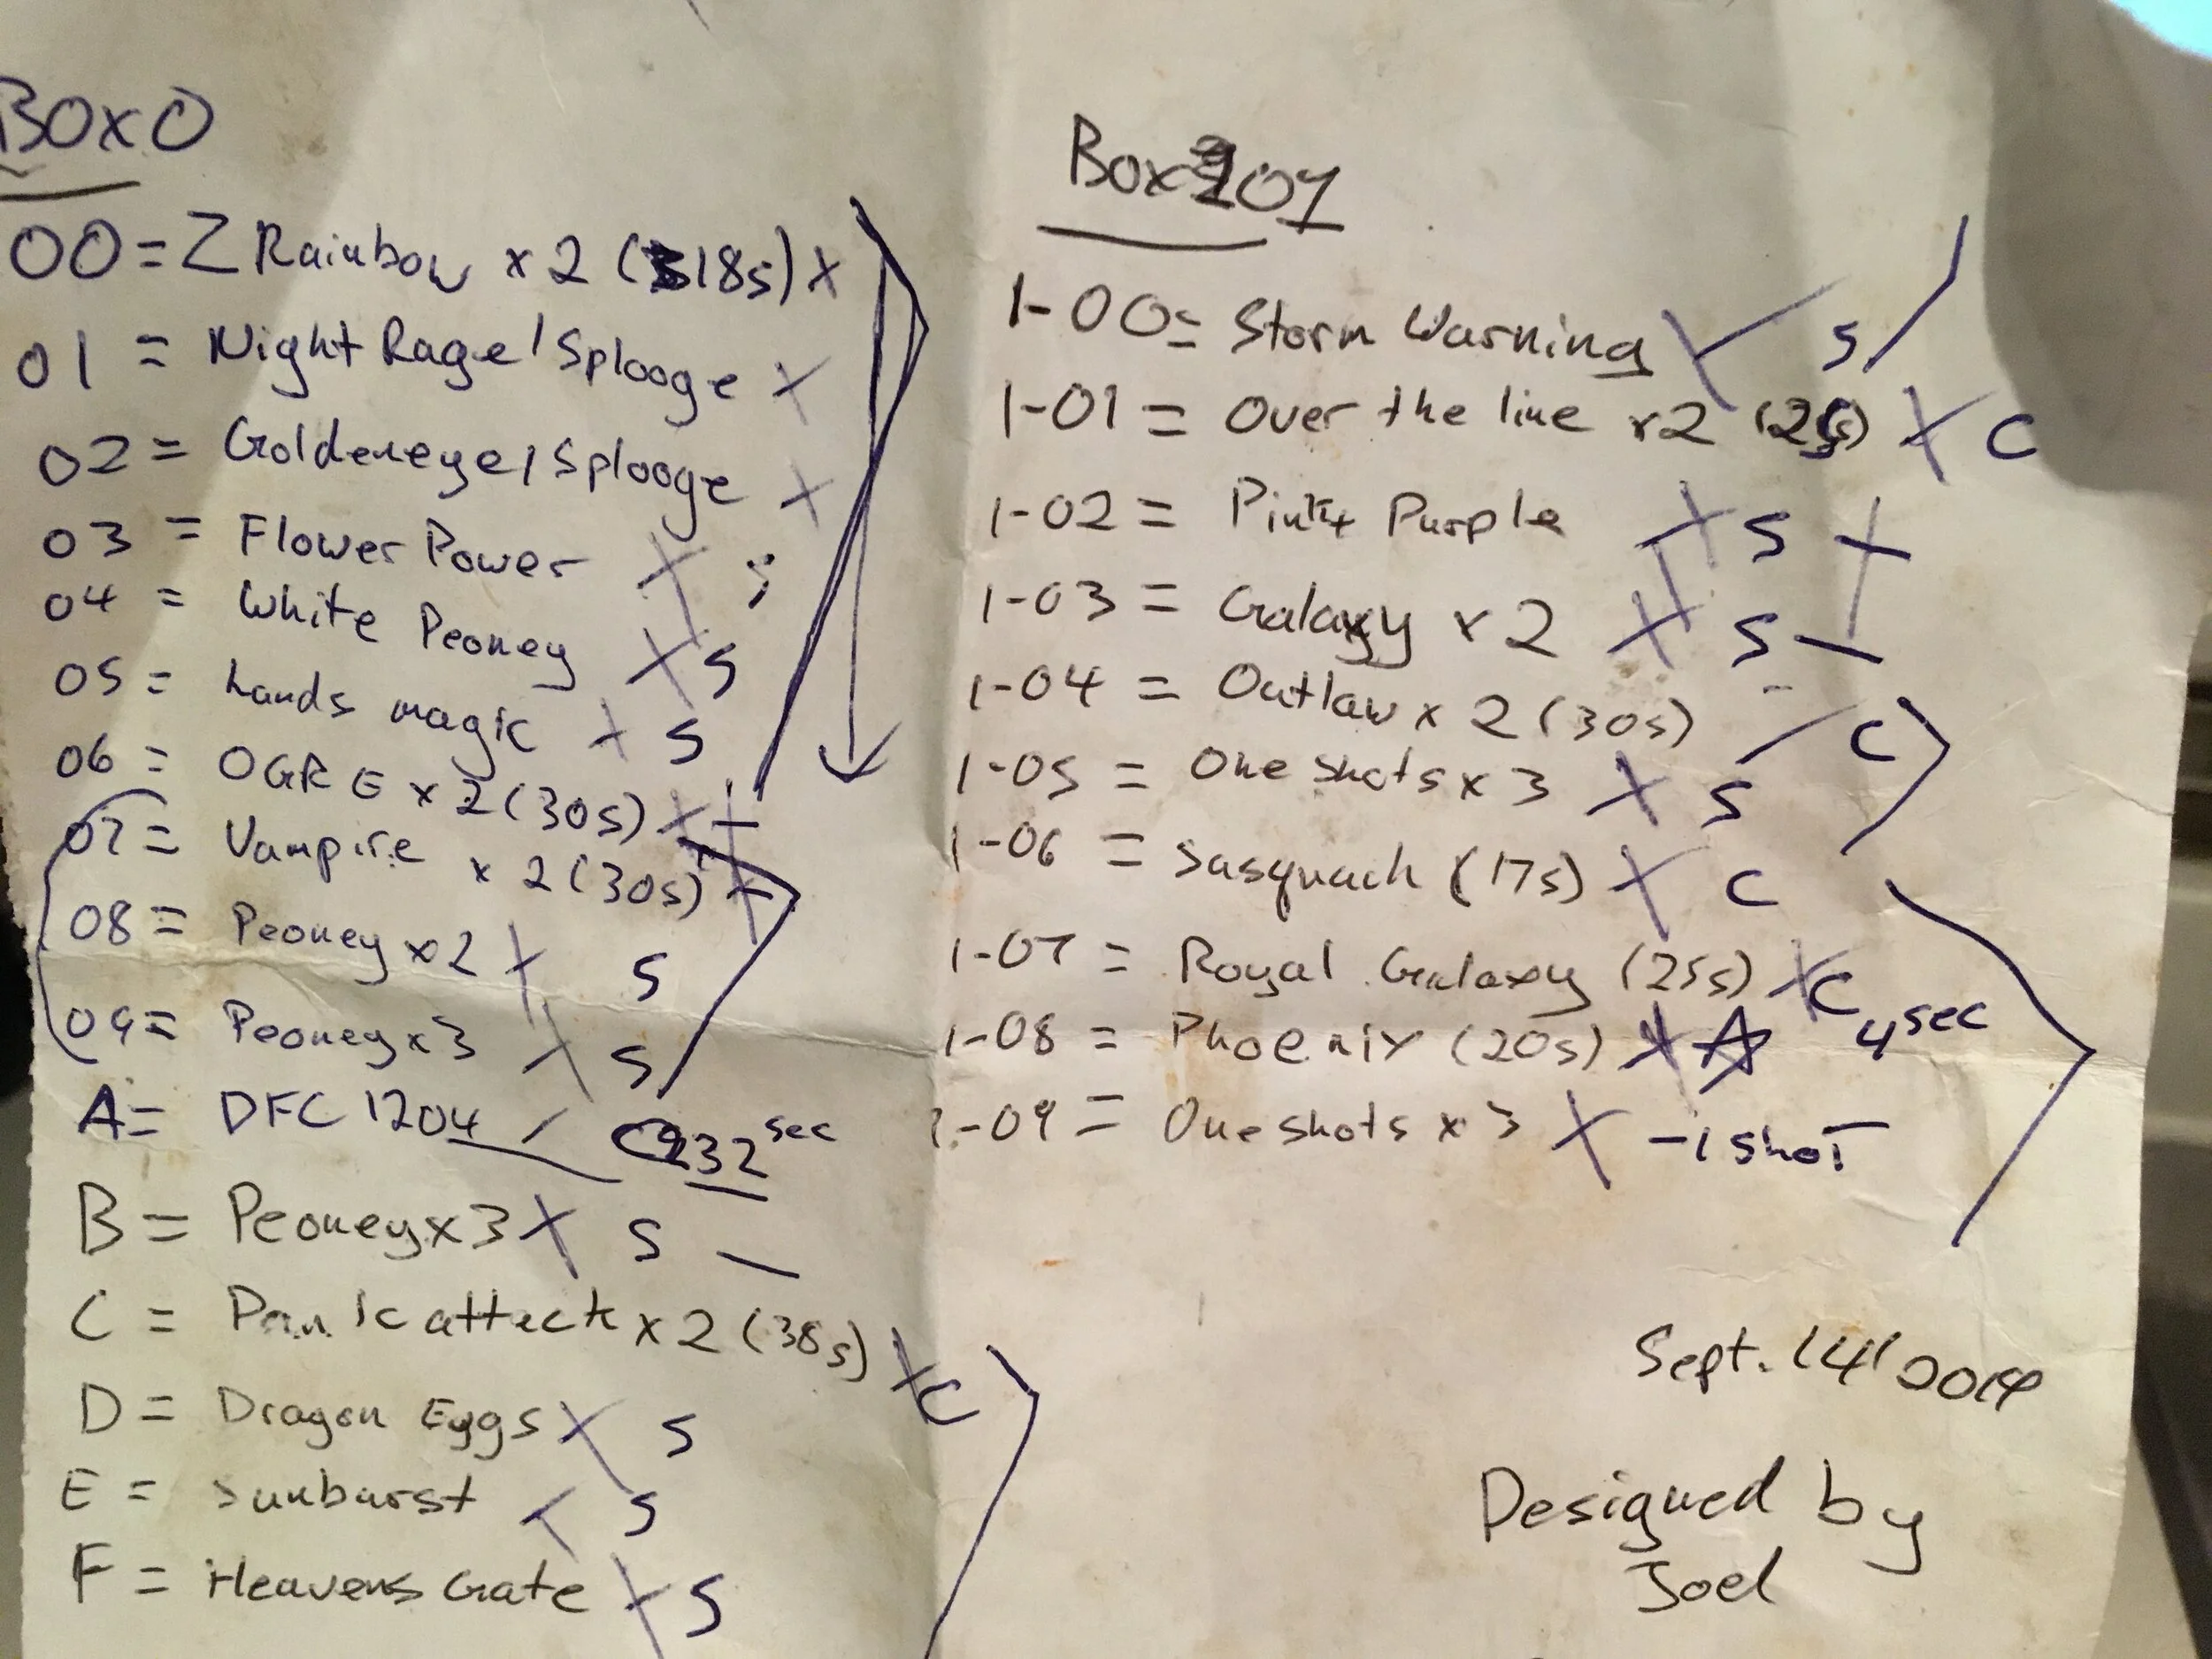 Box 0
00 = Z Rainbow x 2 (18s) x
01 = Night Rage / Splooge X
02 = Goldeneye / Splooge X
03 = Flower Power X s
04 = White Peoney X S
05 = hands magic X S
06 = OGRE x 2 (30s) X
07 = Vampire x 2 (30s)
08 = Peoney x 2 X S
09 = Peoney x 3 X S
A = DFC 1204 / C 32 sec
B = Peoney x 3 X S -
C = Panic attack x 2 (38s) X C
D = Dragon Eggs X S
E = Sunburst X S
F = Heavens Gate X S
Box 01
1-00 = Storm Warning X S
1-01 = Over the line x2 X C
1-02 = Pink + Purple X S
1-03 = Galaxy x 2 X S
1-04 = Outlaw x 2 (30s) / C
1-05 = One shots x 3 X S
1-06 = Sasquach (17s) X C
1-07 = Royal Galaxy (25s) X C
1-08 = Phoenix (20s) X A 4 sec
1-09 = One shots x 3 X - 1 shot
Sept. 14/2014
Designed by
Joel